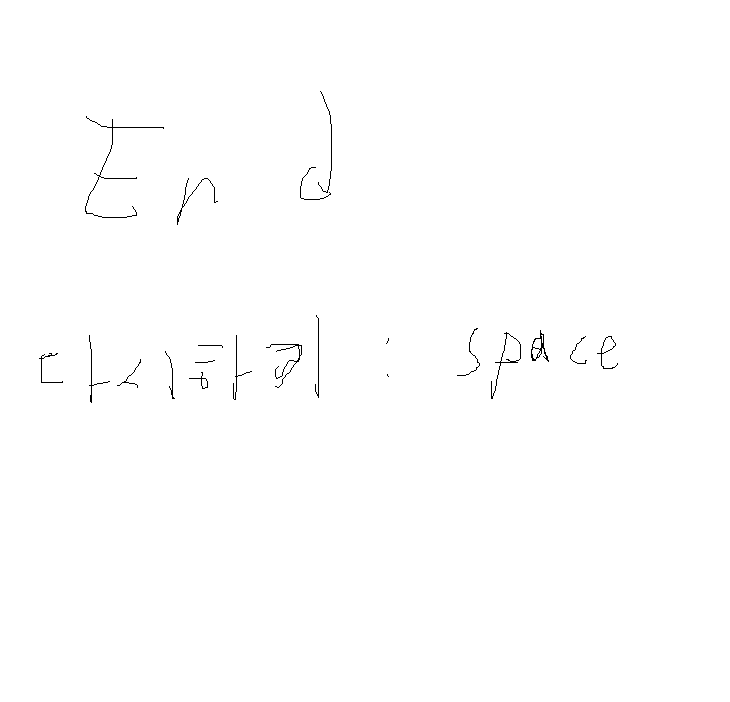 End
다시하기 : space